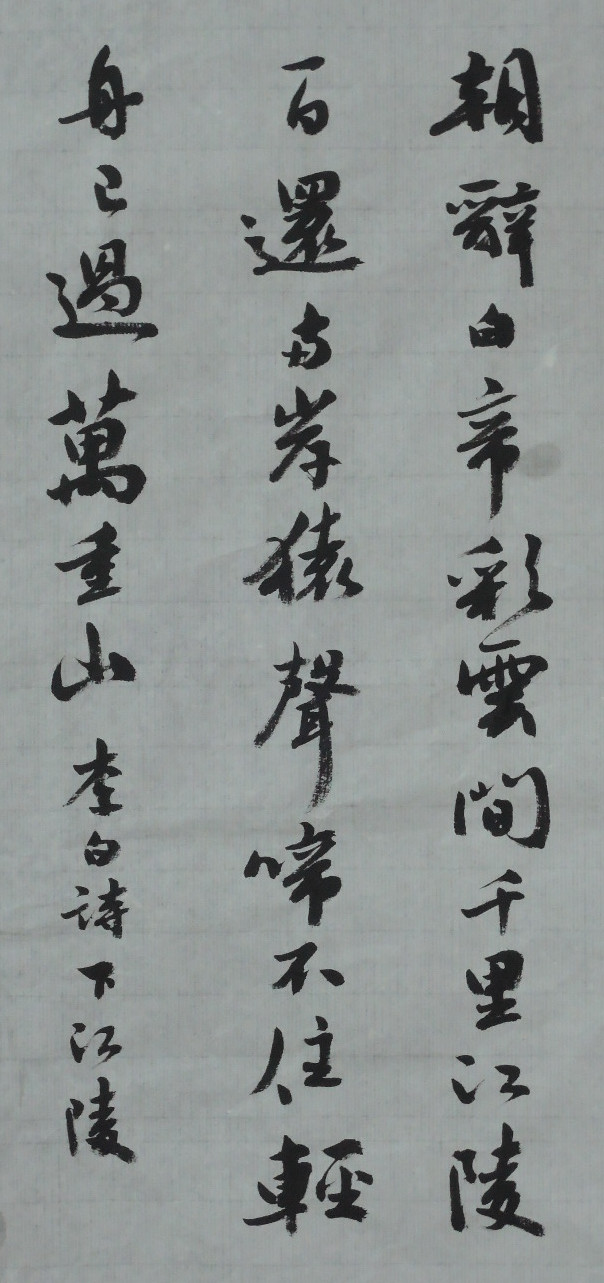 朝辭白帝彩雲間千里江陵
一日還兩岸猿聲啼不住輕
舟已過萬重山李白詩下江陵